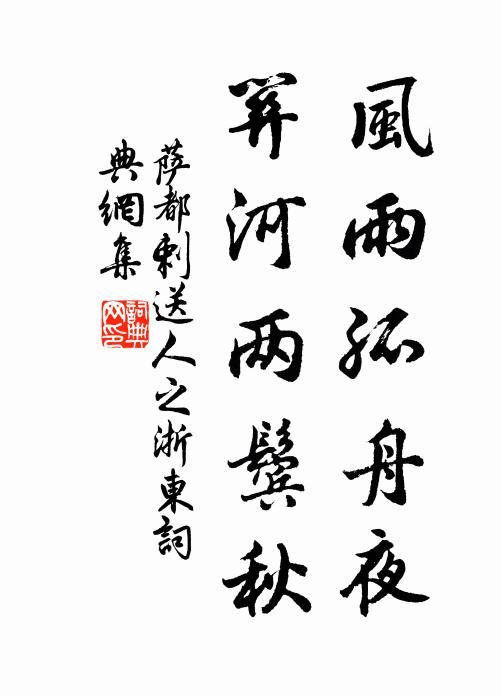 風雨孤舟夜
關河两鬓秋
薩都剌送人之浙東詞
典網集
詞典
网印